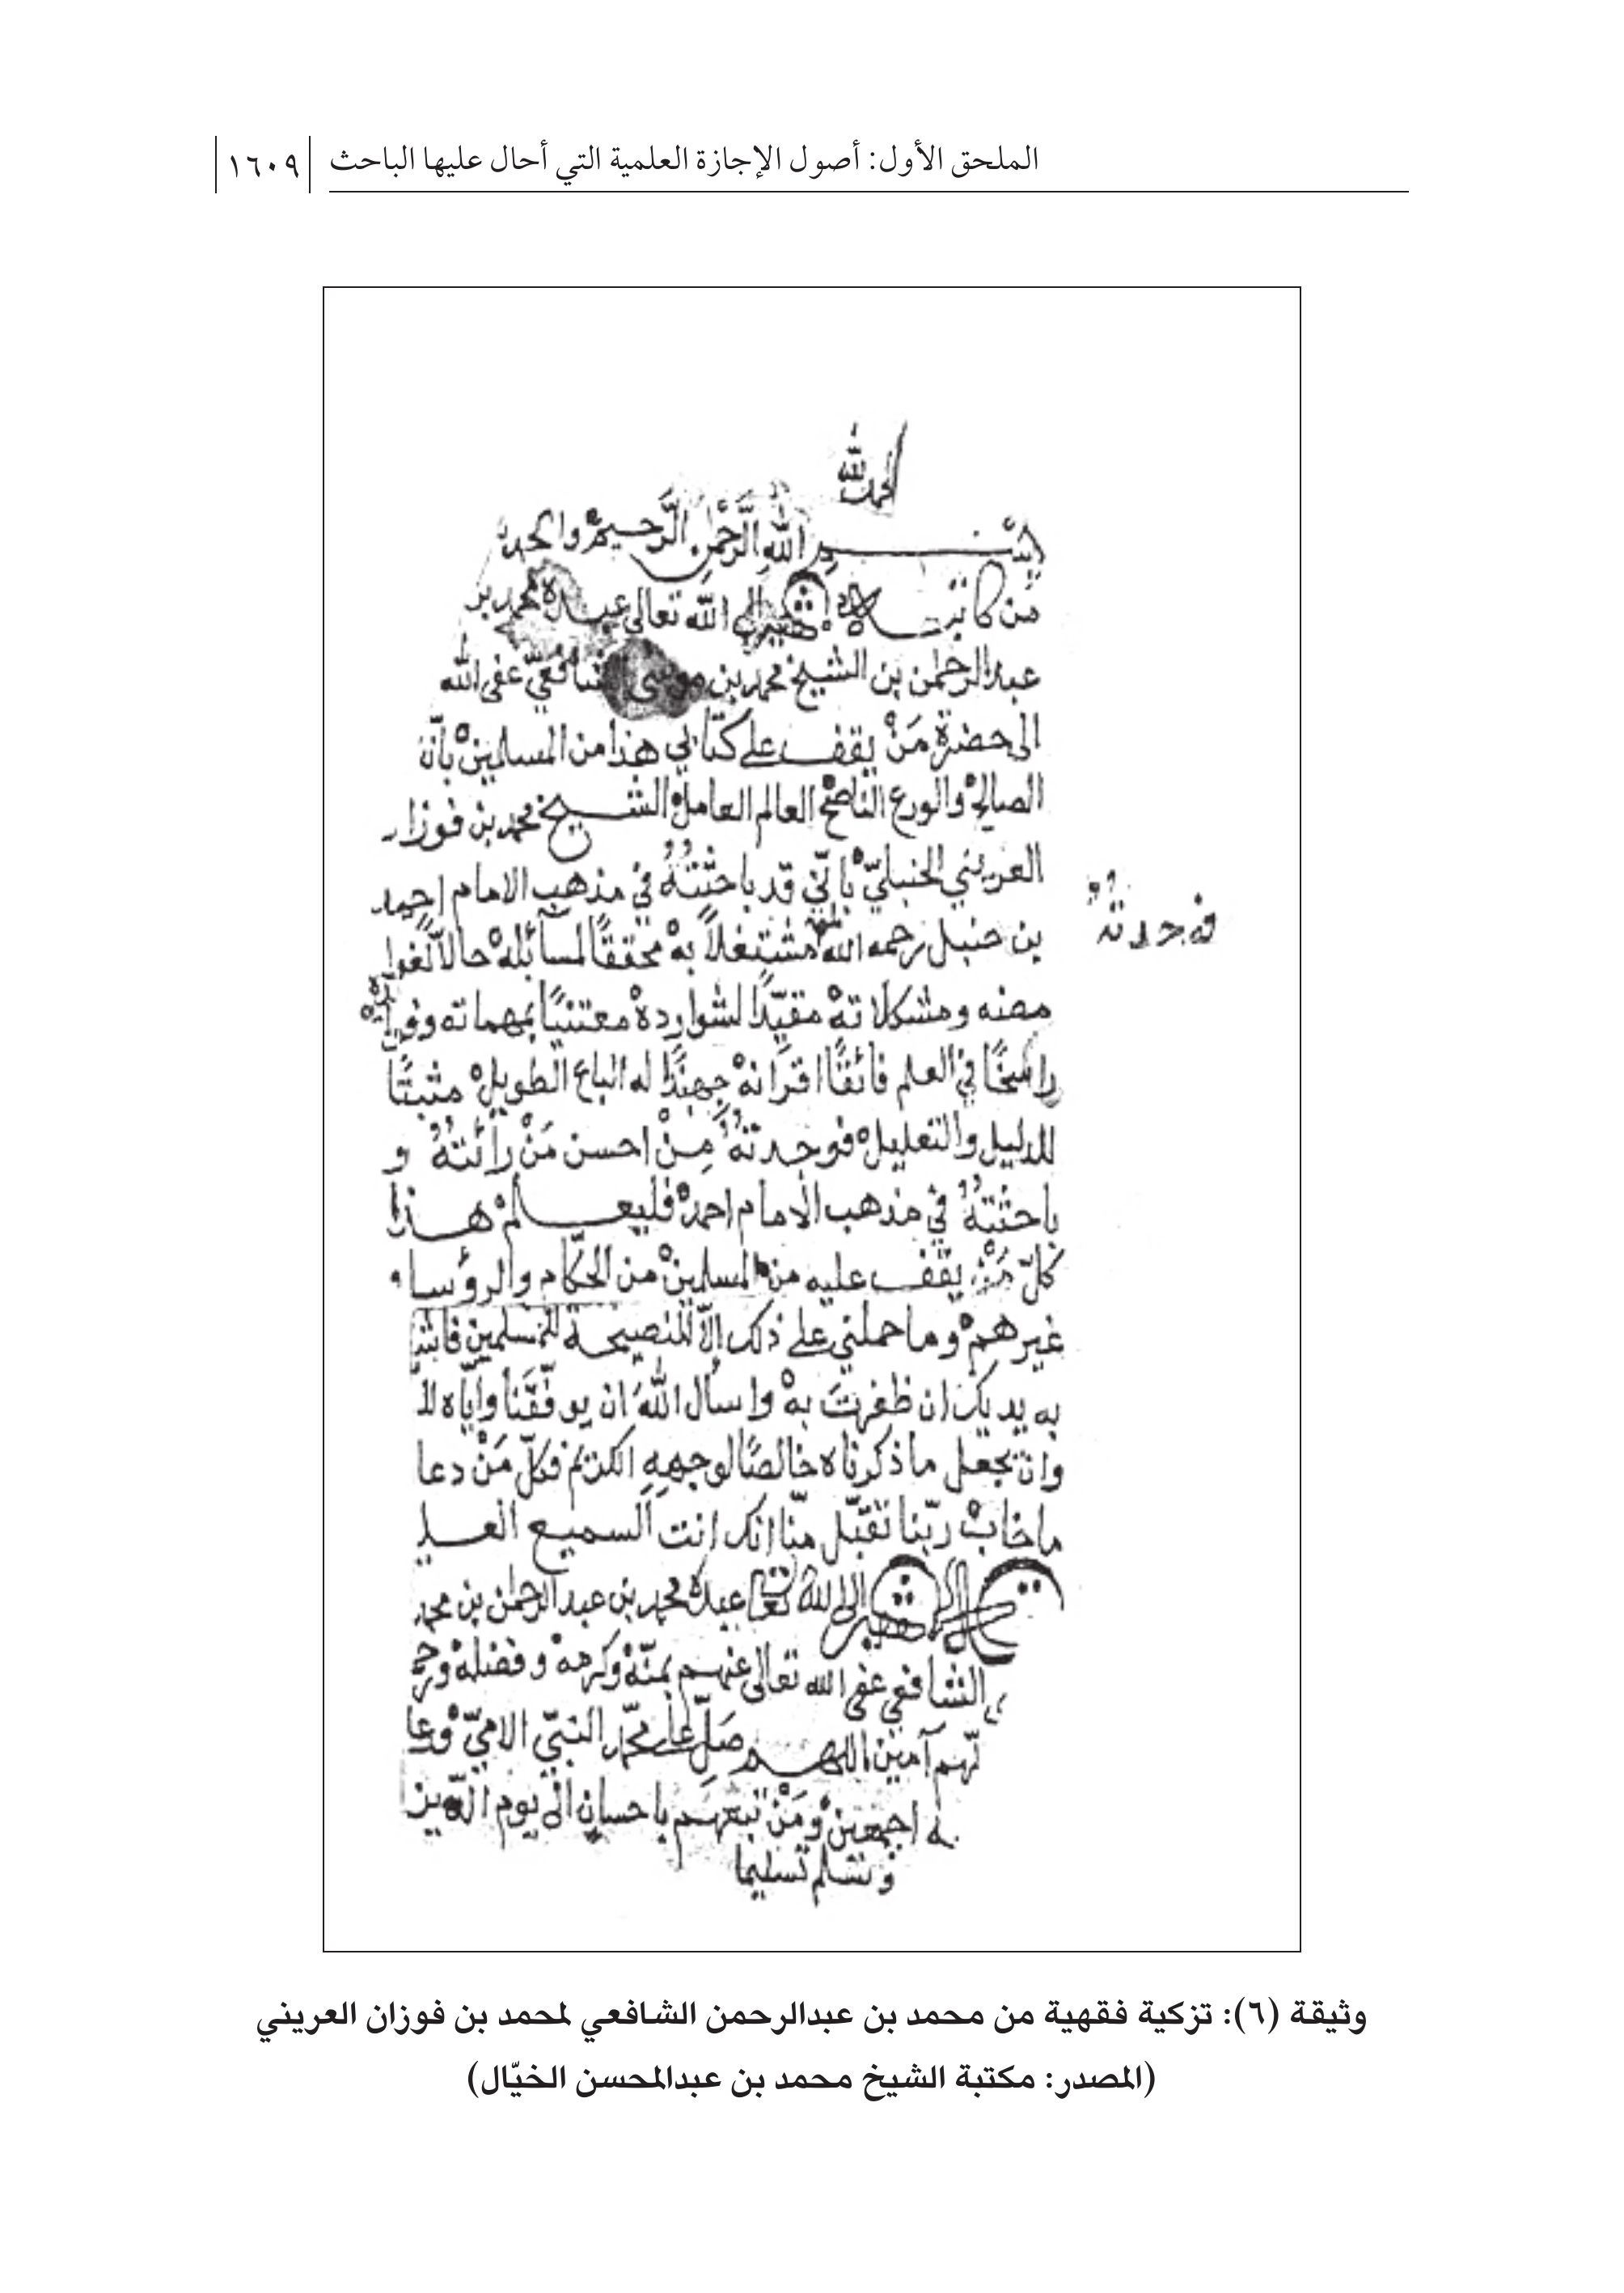 الملحق الأول: أصول الإجازة العلمية التي أحال عليها الباحث ١٦٠٩
الحمد لله
بسم الله الرَّحْمٰنِ الرَّحيمْ والحمد
من كاتبه الفقير الى الله تعالى عبده محمد بن
عبد الرحمٰن بن الشيخ محمد بن موسى الشافعيّ عفى الله
الى حضرة مَنْ يقف على كتابي هذا من المسلمينْ بأنّ
الصالحْ والورع الناصحْ العالم العاملْ الشيخ محمد بن فوزان
العريني الحنبليّْ بأنّي قد باحثتُهُ في مذهب الامام احمد
فوجدتهُ
بن حنبل رحمه الله مشتغلاً بهْ محققًا لمسآئلهْ حالاًّ لغوا
مضه ومشكلاتهْ مقيّدًا لشواردهْ معتنيًا بمهماته وفوائدهْ
راسخًا في العلم فائقًا اقرانهْ جهبذًا له الباع الطويلْ مثبتًا
للدليل والتعليلْ فوجدتهُ مِنْ احسن مَنْ رأئتهُ و
باحثتهُ في مذهب الامام احمدْ فليعلمْ هذا
كلّ مَنْ يقف عليه من المسلمينْ من الحكّام والرؤساء
غيرهمْ وما حملني على ذلك إلاّ النصيحة للمسلمين فاشد
به يديك ان ظفرتَ بهْ واسأل اللهَ ان يوفّقَنا وايّاه
وان يجعل ما ذكرناه خالصًا لوجههِ الكريم فكلّ مَنْ دعا
ما خابْ ربّنا تقبّل منّا انك انت السميع العليم
الفقير الى الله تعالى عبدهُ محمد بن عبد الرحمٰن بن محمد
الشافعي عفى الله تعالى عنهم بمنّهْ وكرمهْ وفضلهْ
آمين اللهم صَلِّ على محمّد النبيّ الاميّْ وعلى
اجمعينْ ومَنْ تبعهم باحسانٍ الى يوم الدّين
وسلم تسليما
وثيقة (٦): تزكية فقهية من محمد بن عبدالرحمن الشافعي لمحمد بن فوزان العريني
(المصدر: مكتبة الشيخ محمد بن عبدالمحسن الخيّال)